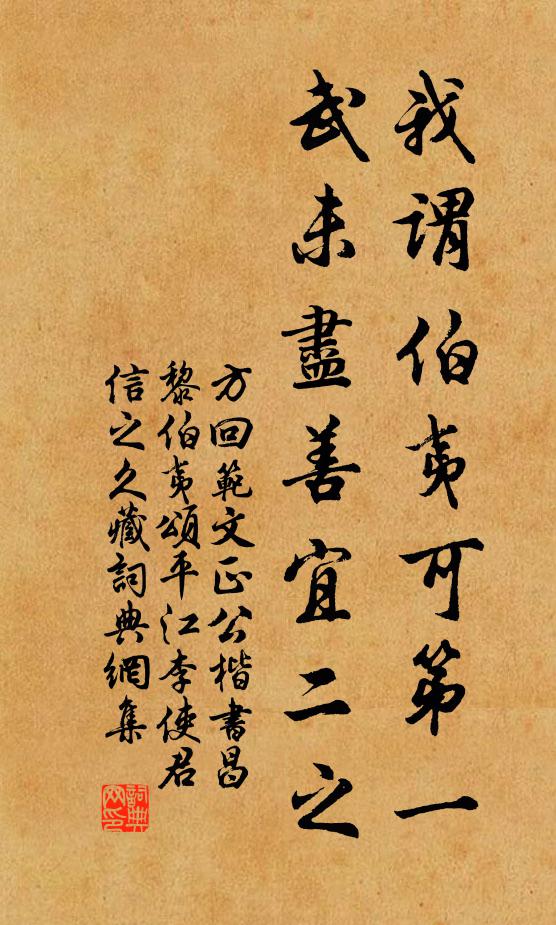 我謂伯夷可第一
武未盡善宜二之
方回範文正公楷書昌
黎伯夷頌平江李使君
信之久藏詞典網集
詞典网印